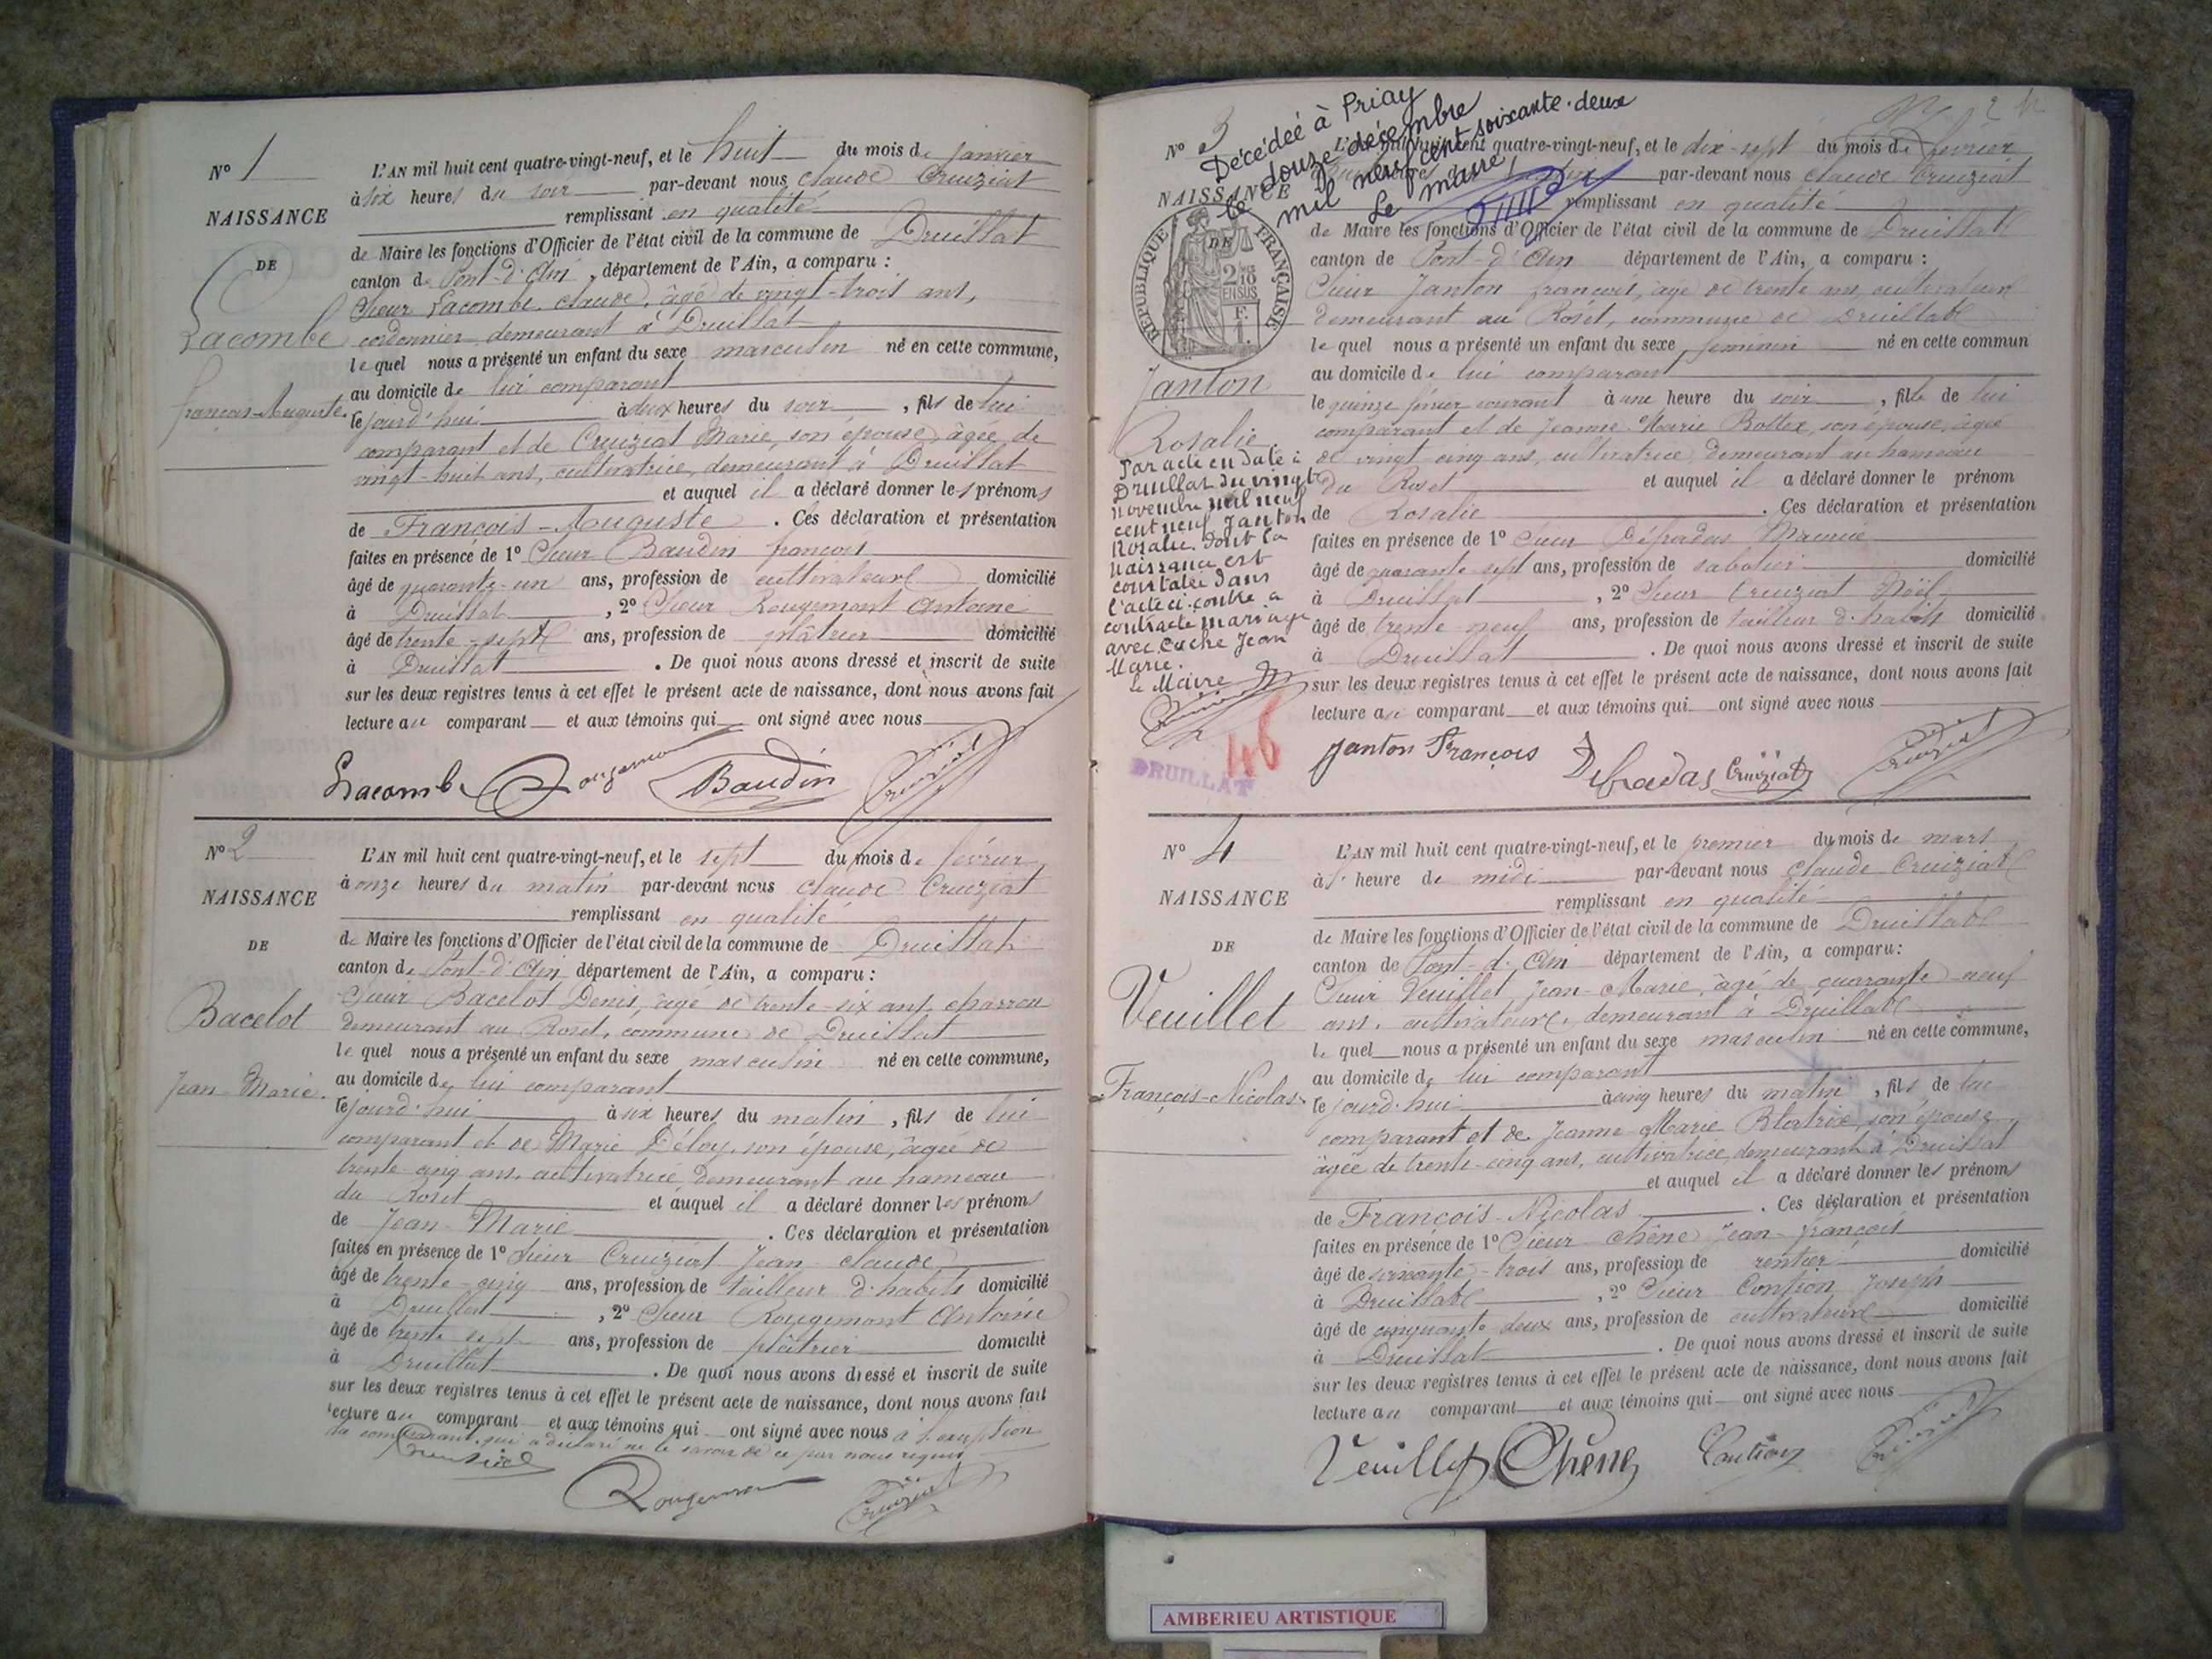 N° 1
NAISSANCE
DE
Lacombe
François-Auguste.
L'AN mil huit cent quatre-vingt-neuf, et le huit du mois de janvier
à six heures du soir par-devant nous Claude Cruiziat
remplissant en qualité
de Maire les fonctions d'Officier de l'état civil de la commune de Druillat
canton de Pont-d'Ain, département de l'Ain, a comparu :
Sieur Lacombe Claude, âgé de vingt-trois ans,
cordonnier demeurant à Druillat
le quel nous a présenté un enfant du sexe masculin né en cette commune,
au domicile de lui comparant
le jourd'hui à deux heures du soir, fils de lui
comparant et de Cruiziat Marie, son épouse, âgée de
vingt-huit ans, cultivatrice, demeurant à Druillat
et auquel il a déclaré donner les prénoms
de François-Auguste. Ces déclaration et présentation
faites en présence de 1° Sieur Baudin françois
âgé de quarante-un ans, profession de cultivateur domicilié
à Druillat, 2° Sieur Rougemont Antoine
âgé de trente-sept ans, profession de plâtrier domicilié
à Druillat. De quoi nous avons dressé et inscrit de suite
sur les deux registres tenus à cet effet le présent acte de naissance, dont nous avons fait
lecture au comparant et aux témoins qui ont signé avec nous
Lacombe Rougemont Baudin Cruiziat
N° 2
NAISSANCE
DE
Bacelot
Jean-Marie.
L'AN mil huit cent quatre-vingt-neuf, et le sept du mois de février
à onze heures du matin par-devant nous Claude Cruiziat
remplissant en qualité
de Maire les fonctions d'Officier de l'état civil de la commune de Druillat
canton de Pont-d'Ain département de l'Ain, a comparu :
Sieur Bacelot Denis, âgé de trente-six ans, charron
demeurant au Roset, commune de Druillat
le quel nous a présenté un enfant du sexe masculin né en cette commune,
au domicile de lui comparant
le jourd'hui à six heures du matin, fils de lui
comparant et de Marie Déloy, son épouse, âgée de
trente-cinq ans, cultivatrice, demeurant au hameau
du Roset et auquel il a déclaré donner les prénoms
de Jean-Marie. Ces déclaration et présentation
faites en présence de 1° Sieur Cruiziat Jean Claude
âgé de trente-cinq ans, profession de tailleur d'habits domicilié
à Druillat, 2° Sieur Rougemont Antoine
âgé de trente sept ans, profession de plâtrier domicilié
à Druillat. De quoi nous avons dressé et inscrit de suite
sur les deux registres tenus à cet effet le présent acte de naissance, dont nous avons fait
lecture au comparant et aux témoins qui ont signé avec nous à l'exception
du comparant qui a déclaré ne le savoir de ce par nous requis
Cruiziat
Rougemont Cruiziat
N° 3
Décédée à Priay
le douze décembre
mil neuf cent soixante-deux
Le maire,
NAISSANCE
DE
RÉPUBLIQUE FRANÇAISE
Janton
Rosalie
Par acte en date à
Druillat du vingt
novembre mil neuf
cent neuf Janton
Rosalie dont la
naissance est
constatée dans
l'acte ci-contre a
contracté mariage
avec Cuche Jean
Marie.
Le Maire
46
DRUILLAT
L'AN mil huit cent quatre-vingt-neuf, et le dix-sept du mois de février
par-devant nous Claude Cruiziat
remplissant en qualité
de Maire les fonctions d'Officier de l'état civil de la commune de Druillat
canton de Pont-d'Ain département de l'Ain, a comparu :
Sieur Janton françois, âgé de trente ans, cultivateur
demeurant au Roset, commune de Druillat
le quel nous a présenté un enfant du sexe féminin né en cette commun
au domicile de lui comparant
le quinze février courant à une heure du soir, fille de lui
comparant et de Jeanne-Marie Bottex, son épouse, âgée
de vingt cinq ans, cultivatrice, demeurant au hameau
du Roset et auquel il a déclaré donner le prénom
de Rosalie. Ces déclaration et présentation
faites en présence de 1° Sieur Défradas Maurice
âgé de quarante sept ans, profession de sabotier domicilié
à Druillat, 2° Sieur Cruiziat Noël
âgé de trente neuf ans, profession de tailleur d'habits domicilié
à Druillat. De quoi nous avons dressé et inscrit de suite
sur les deux registres tenus à cet effet le présent acte de naissance, dont nous avons fait
lecture au comparant et aux témoins qui ont signé avec nous
Janton François Défradas Cruiziat Cruiziat
N° 4
NAISSANCE
DE
Veuillet
François-Nicolas
L'AN mil huit cent quatre-vingt-neuf, et le premier du mois de mars
à l' heure de midi par-devant nous Claude Cruiziat
remplissant en qualité
de Maire les fonctions d'Officier de l'état civil de la commune de Druillat
canton de Pont-d'Ain département de l'Ain, a comparu :
Sieur Veuillet Jean-Marie, âgé de quarante-neuf
ans, cultivateur, demeurant à Druillat
le quel nous a présenté un enfant du sexe masculin né en cette commune,
au domicile de lui comparant
le jourd'hui à cinq heures du matin, fils de lui
comparant et de Jeanne-Marie Blatrix, son épouse
âgée de trente-cinq ans, cultivatrice, demeurant à Druillat
et auquel il a déclaré donner les prénoms
de François-Nicolas. Ces déclaration et présentation
faites en présence de 1° Sieur Chêne Jean-françois
âgé de soixante-trois ans, profession de rentier domicilié
à Druillat, 2° Sieur Contion Joseph
âgé de cinquante deux ans, profession de cultivateur domicilié
à Druillat. De quoi nous avons dressé et inscrit de suite
sur les deux registres tenus à cet effet le présent acte de naissance, dont nous avons fait
lecture au comparant et aux témoins qui ont signé avec nous
Veuillet Chêne Contion Cruiziat
AMBERIEU ARTISTIQUE